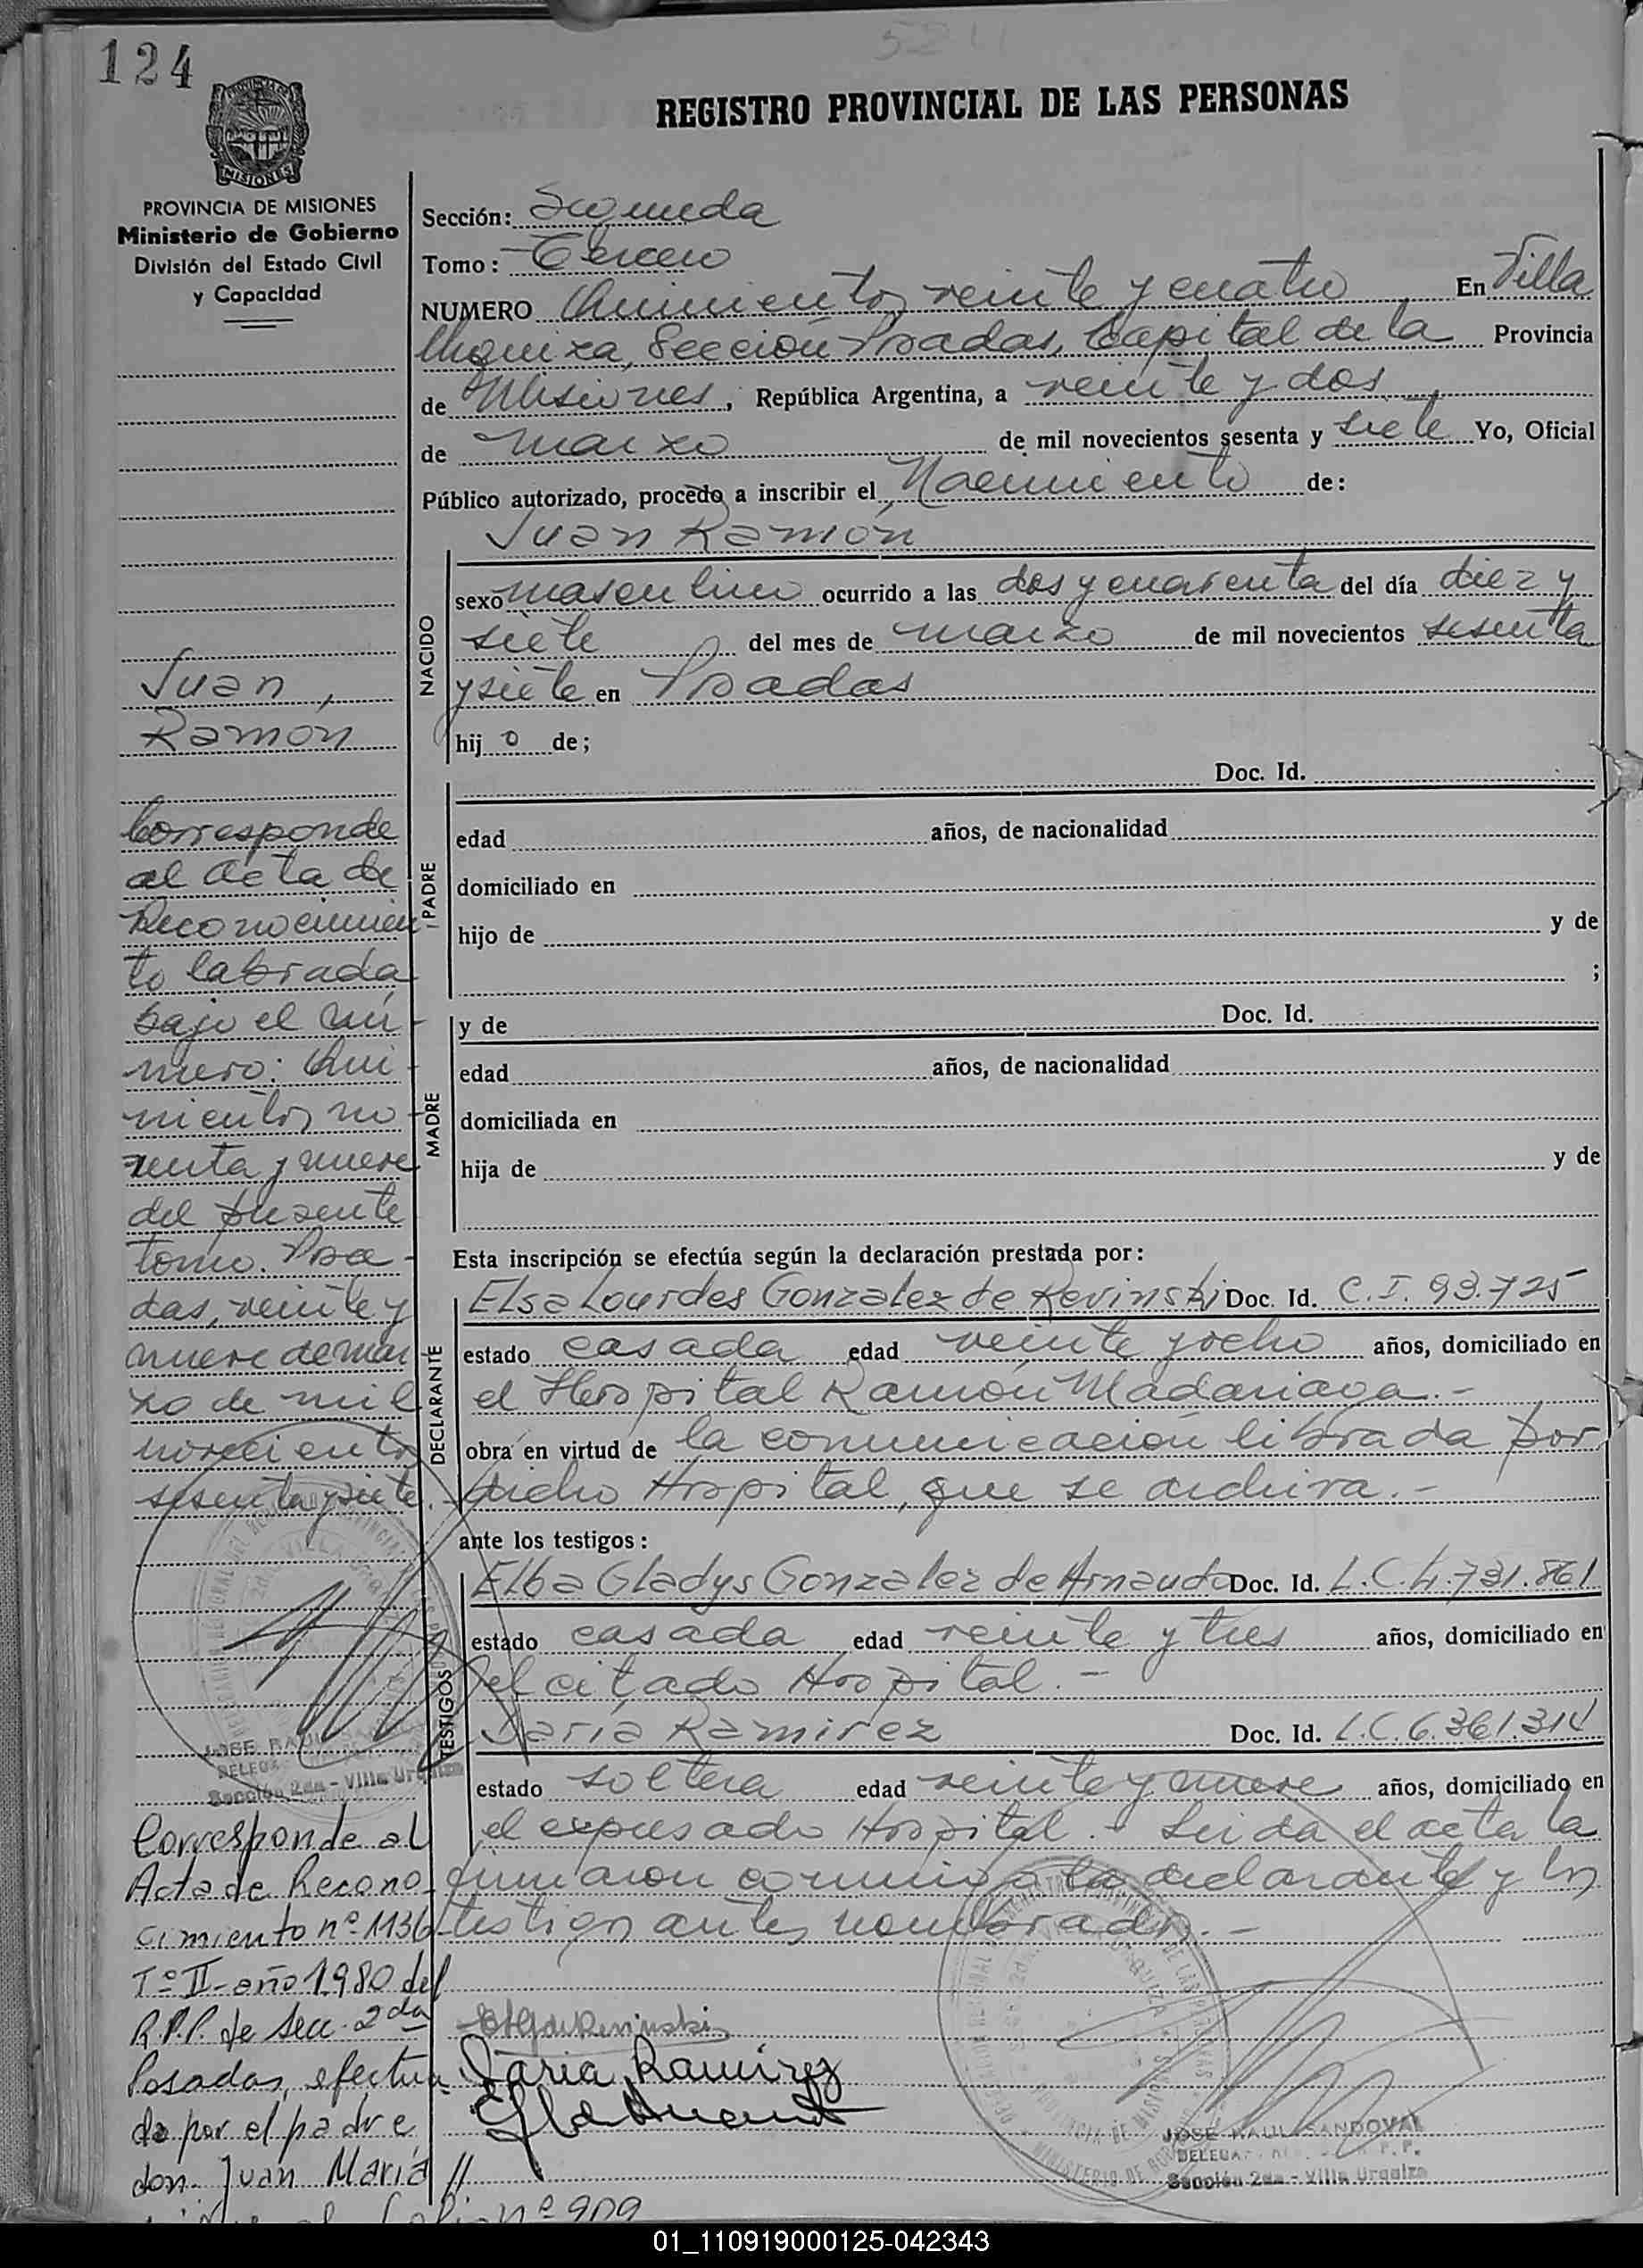 124
REGISTRO PROVINCIAL DE LAS PERSONAS
MISIONES
PROVINCIA DE MISIONES
Ministerio de Gobierno
División del Estado Civil
y Capacidad
Sección: Segunda
Tomo: Tercero
NUMERO Quinientos veinte y cuatro En Villa
Urquiza, Sección Posadas, Capital de la Provincia
de Misiones, República Argentina, a veinte y dos
de marzo de mil novecientos sesenta y siete Yo, Oficial
Público autorizado, procedo a inscribir el Nacimiento de:
Juan Ramón
NACIDO
sexo masculino ocurrido a las dos y cuarenta del día diez y
siete del mes de marzo de mil novecientos sesenta
y siete en Posadas
hijo de;
PADRE
Doc. Id.
edad años, de nacionalidad
domiciliado en
hijo de y de
;
MADRE
y de Doc. Id.
edad años, de nacionalidad
domiciliada en
hija de y de
Esta inscripción se efectúa según la declaración prestada por:
DECLARANTE
Elsa Lourdes Gonzalez de Kevinski Doc. Id. C.I. 93.725
estado casada edad veinte y ocho años, domiciliado en
el Hospital Ramón Madariaga.-
obra en virtud de la comunicación librada por
dicho Hospital, que se archiva.-
ante los testigos:
TESTIGOS
Elba Gladys Gonzalez de Arnaudo Doc. Id. L.C. 4.731.861
estado casada edad veinte y tres años, domiciliado en
el citado Hospital.-
Daria Ramirez Doc. Id. L.C. 6.361.314
estado soltera edad veinte y nueve años, domiciliado en
el expresado Hospital.- Leida el acta la
firmaron conmigo la declarante y los
testigos antes nombrados.-
Daria Ramirez
JOSE RAUL SANDOVAL
Sección 2da - Villa Urquiza
Juan
Ramón
Corresponde
al Acta de
Reconocimien-
to labrada
bajo el nú-
mero: Qui-
nientos no-
venta y nueve
del presente
tomo. Posa-
das, veinte y
nueve de mar-
zo de mil
novecientos
sesenta y siete.
JOSE RAUL
Sección 2da - Villa Urquiza
Corresponde al
Acta de Recono-
cimiento nº 1136
Tº II - año 1980 del
R.P.P. de Secc. 2da
Posadas, efectua-
do por el padre
don Juan Maria //
nº 909
01_110919000125-042343